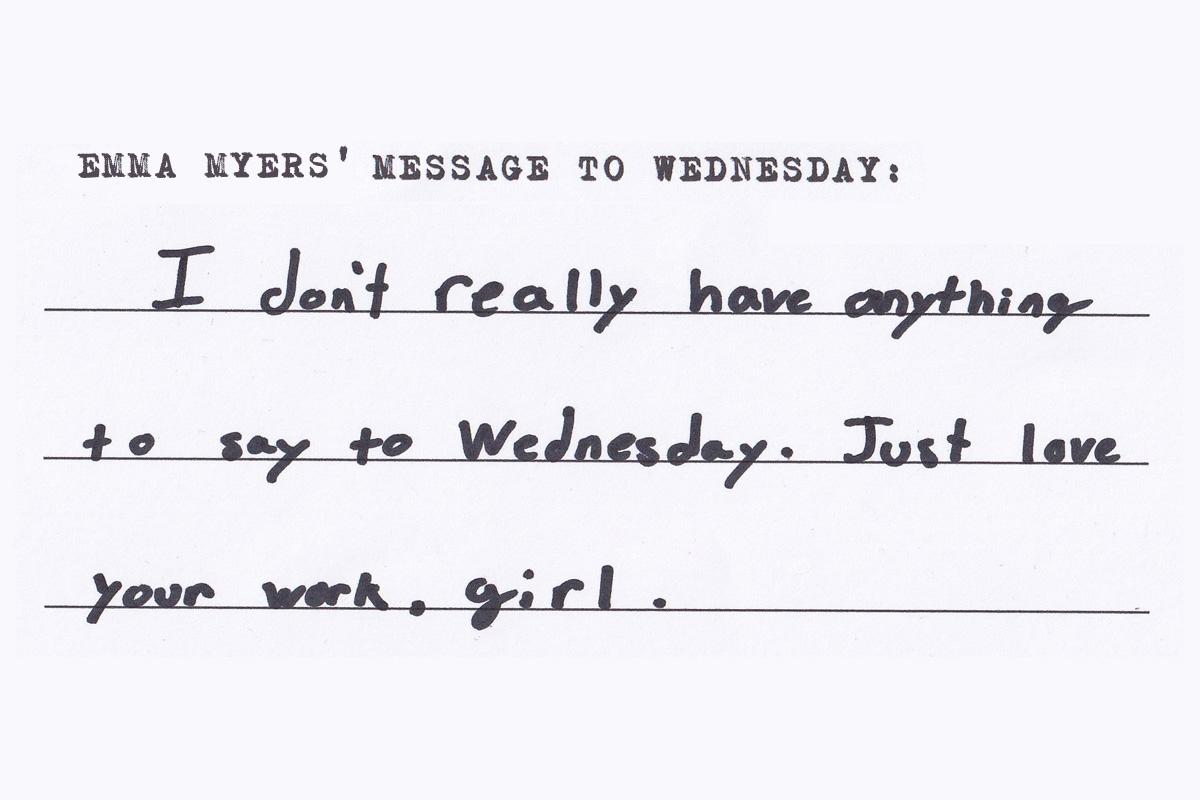 EMMA MYERS' MESSAGE TO WEDNESDAY:
I don't really have anything
to say to Wednesday. Just love
your work, girl.